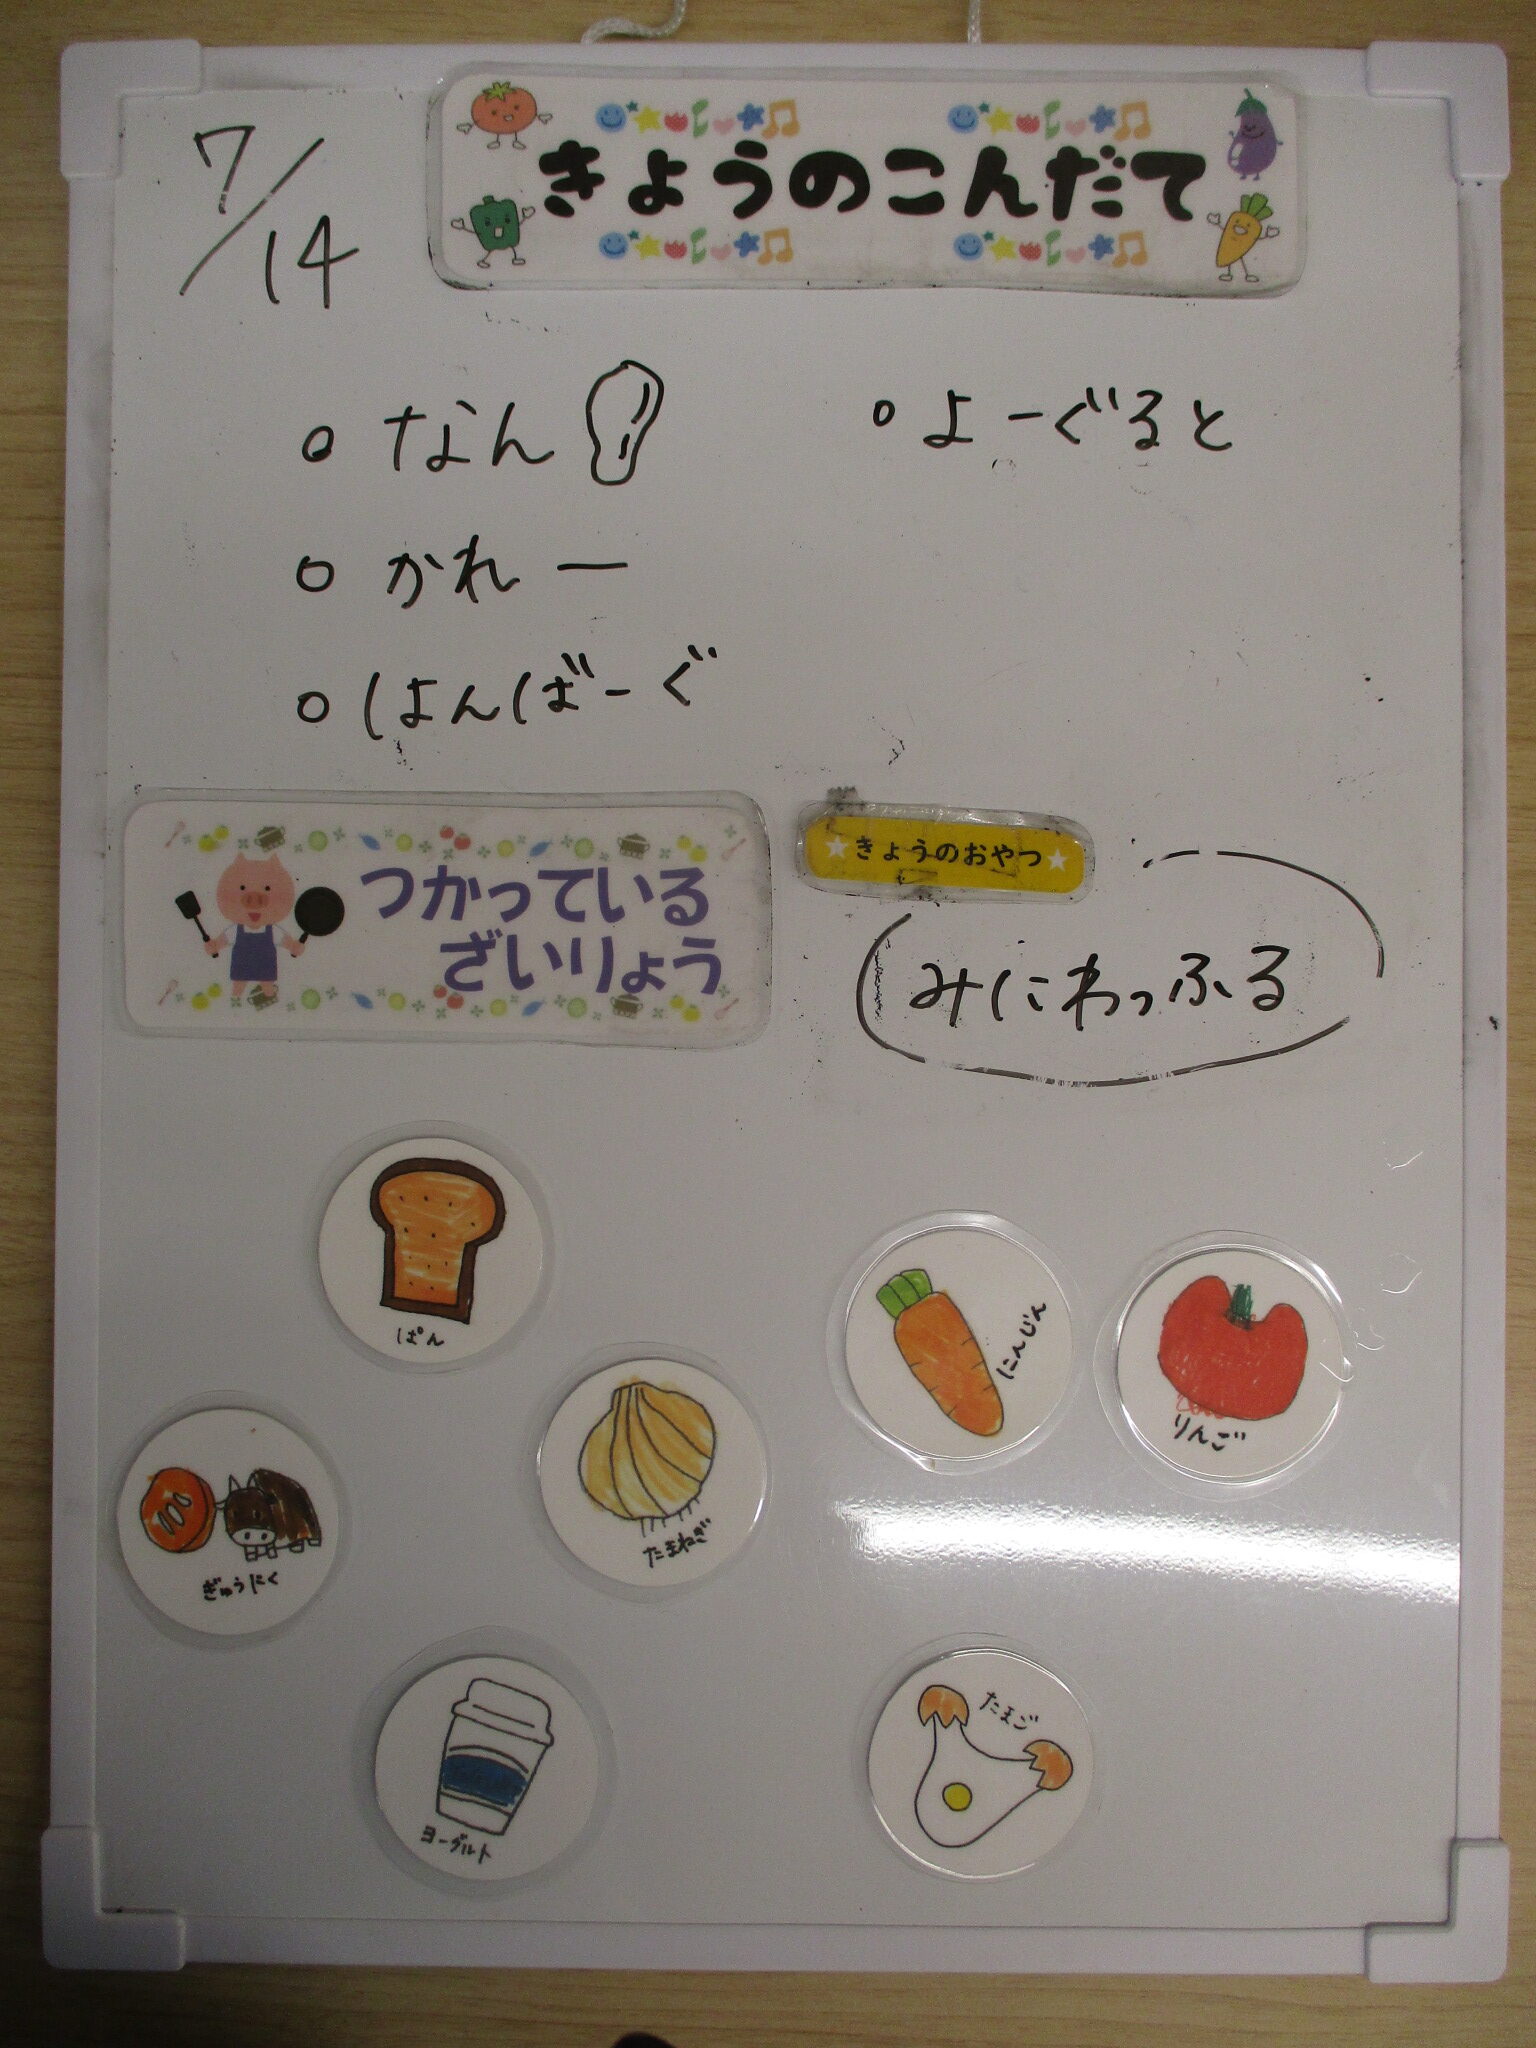 7/14
きょうのこんだて
○ なん
○ かれー
○ はんばーぐ
○ よーぐると
つかっている
ざいりょう
きょうのおやつ
みにわっふる
ぱん
ぎゅうにく
たまねぎ
にんじん
りんご
ヨーグルト
たまご